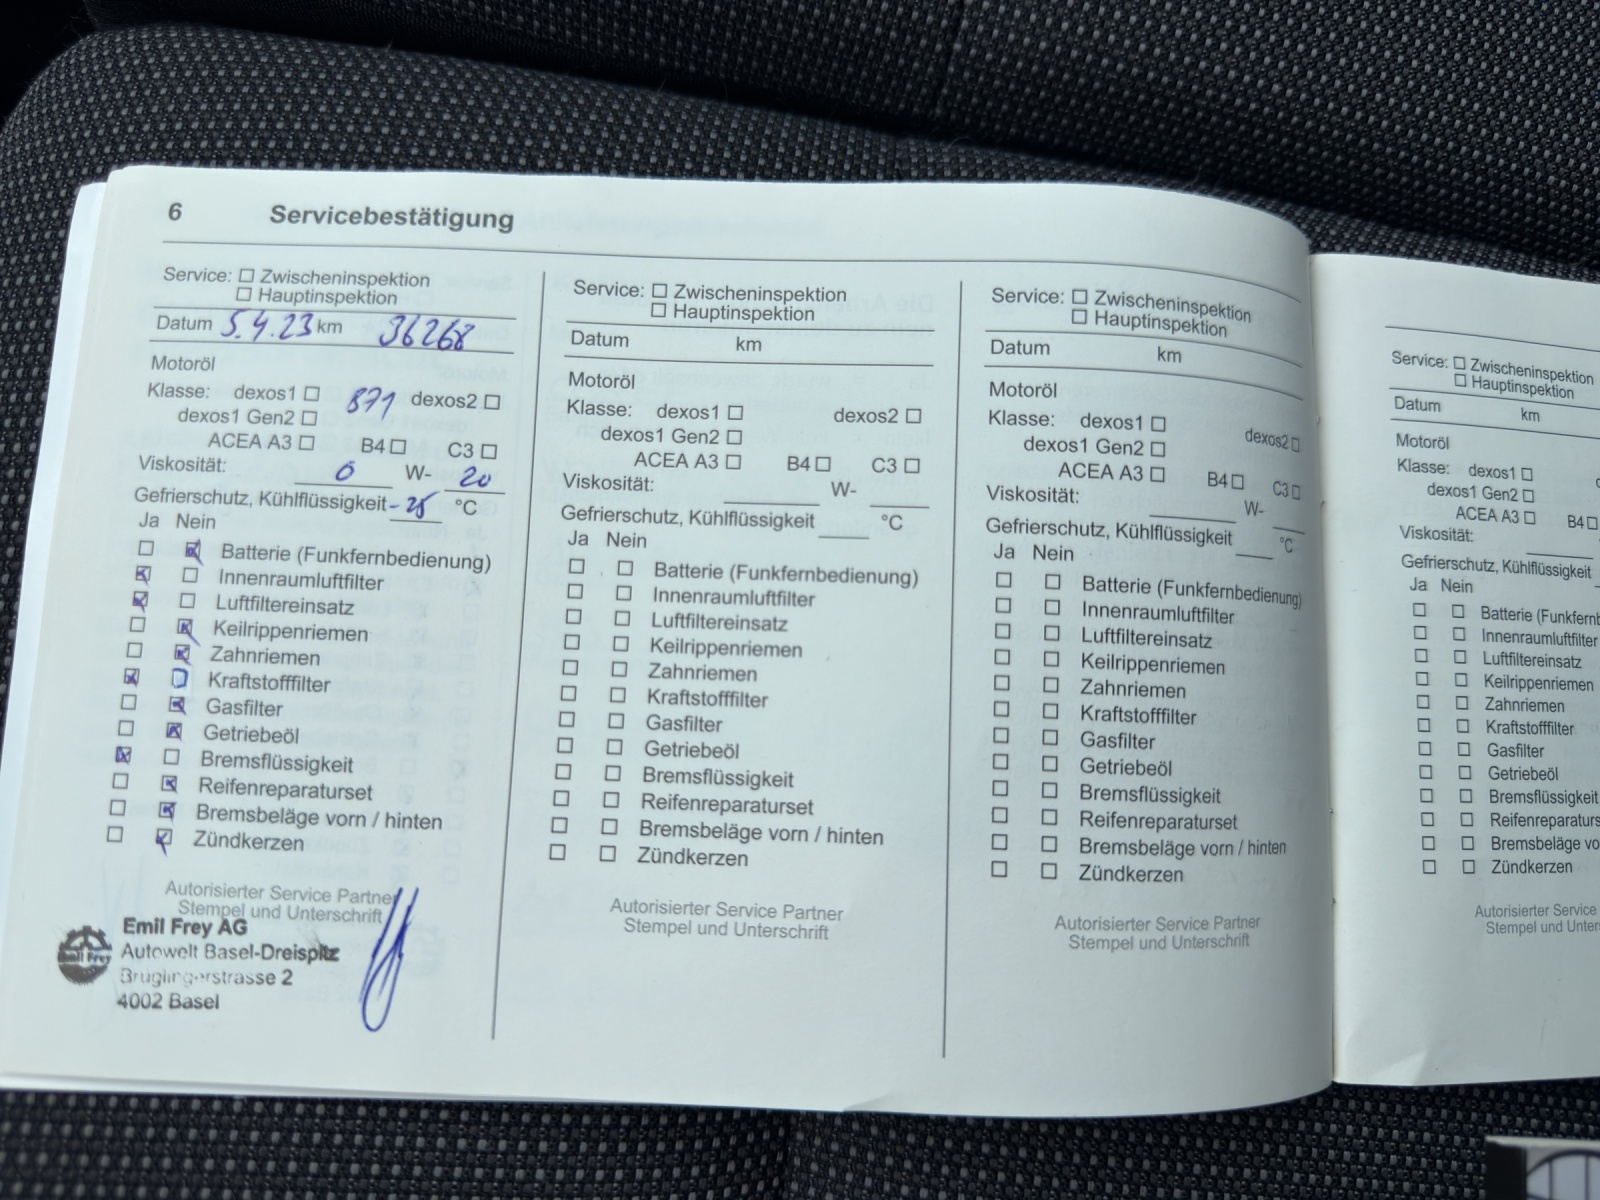 6 Servicebestätigung
Service: ☐ Zwischeninspektion
☐ Hauptinspektion
Datum 5.4.23 km 36268
Motoröl
Klasse: dexos1 ☐ B71 dexos2 ☐
dexos1 Gen2 ☐
ACEA A3 ☐ B4 ☐ C3 ☐
Viskosität: 0 W- 20
Gefrierschutz, Kühlflüssigkeit -25 °C
Ja Nein
☐ ☒ Batterie (Funkfernbedienung)
☒ ☐ Innenraumluftfilter
☒ ☐ Luftfiltereinsatz
☐ ☒ Keilrippenriemen
☐ ☒ Zahnriemen
☒ ☐ Kraftstofffilter
☐ ☒ Gasfilter
☐ ☒ Getriebeöl
☒ ☐ Bremsflüssigkeit
☐ ☒ Reifenreparaturset
☐ ☒ Bremsbeläge vorn / hinten
☐ ☒ Zündkerzen
Autorisierter Service Partner
Stempel und Unterschrift
Emil Frey AG
Autowelt Basel-Dreispitz
Brüglingerstrasse 2
4002 Basel
Emil Frey
Service: ☐ Zwischeninspektion
☐ Hauptinspektion
Datum km
Motoröl
Klasse: dexos1 ☐ dexos2 ☐
dexos1 Gen2 ☐
ACEA A3 ☐ B4 ☐ C3 ☐
Viskosität: W-
Gefrierschutz, Kühlflüssigkeit °C
Ja Nein
☐ ☐ Batterie (Funkfernbedienung)
☐ ☐ Innenraumluftfilter
☐ ☐ Luftfiltereinsatz
☐ ☐ Keilrippenriemen
☐ ☐ Zahnriemen
☐ ☐ Kraftstofffilter
☐ ☐ Gasfilter
☐ ☐ Getriebeöl
☐ ☐ Bremsflüssigkeit
☐ ☐ Reifenreparaturset
☐ ☐ Bremsbeläge vorn / hinten
☐ ☐ Zündkerzen
Autorisierter Service Partner
Stempel und Unterschrift
Service: ☐ Zwischeninspektion
☐ Hauptinspektion
Datum km
Motoröl
Klasse: dexos1 ☐ dexos2 ☐
dexos1 Gen2 ☐
ACEA A3 ☐ B4 ☐ C3 ☐
Viskosität: W-
Gefrierschutz, Kühlflüssigkeit °C
Ja Nein
☐ ☐ Batterie (Funkfernbedienung)
☐ ☐ Innenraumluftfilter
☐ ☐ Luftfiltereinsatz
☐ ☐ Keilrippenriemen
☐ ☐ Zahnriemen
☐ ☐ Kraftstofffilter
☐ ☐ Gasfilter
☐ ☐ Getriebeöl
☐ ☐ Bremsflüssigkeit
☐ ☐ Reifenreparaturset
☐ ☐ Bremsbeläge vorn / hinten
☐ ☐ Zündkerzen
Autorisierter Service Partner
Stempel und Unterschrift
Service: ☐ Zwischeninspektion
☐ Hauptinspektion
Datum km
Motoröl
Klasse: dexos1 ☐
dexos1 Gen2 ☐
ACEA A3 ☐ B4 ☐
Viskosität:
Gefrierschutz, Kühlflüssigkeit
Ja Nein
☐ ☐ Batterie (Funkfernb
☐ ☐ Innenraumluftfilter
☐ ☐ Luftfiltereinsatz
☐ ☐ Keilrippenriemen
☐ ☐ Zahnriemen
☐ ☐ Kraftstofffilter
☐ ☐ Gasfilter
☐ ☐ Getriebeöl
☐ ☐ Bremsflüssigkeit
☐ ☐ Reifenreparaturs
☐ ☐ Bremsbeläge vo
☐ ☐ Zündkerzen
Autorisierter Service
Stempel und Unters